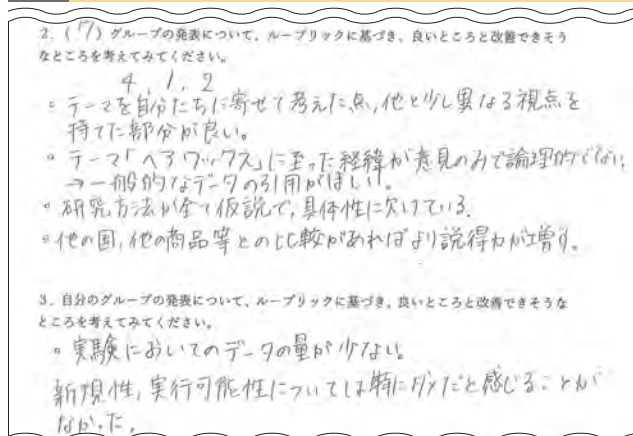 2. (7) グループの発表について、ルーブリックに基づき、良いところと改善できそう
なところを考えてみてください。
4, 1, 2
◦ テーマを自分たちに寄せて考えた点、他と少し異なる視点を
持てた部分が良い。
◦ テーマ「ヘアワックス」に至った経緯が意見のみで論理的でない。
→一般的なデータの引用がほしい。
◦ 研究方法が全て仮説で、具体性に欠けている。
◦ 他の国、他の商品等との比較があればより説得力が増す。
3. 自分のグループの発表について、ルーブリックに基づき、良いところと改善できそうな
ところを考えてみてください。
◦ 実験においてのデータの量が少ない。
新規性、実行可能性については特にダメだと感じることが
なかった。